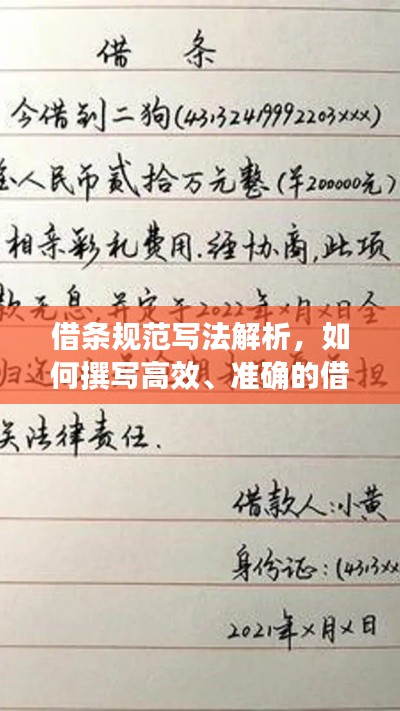 借 条
今借到二狗(43132419992203xxx)
人民币贰拾万元整(￥200000元)
相亲彩礼费用.经协商,此项
款无息,并定于2022年x月x日全
借条规范写法解析，如
何撰写高效、准确的借
担
关法律责任.
借款人:小黄
身份证:(4313xx
2021年x月x日